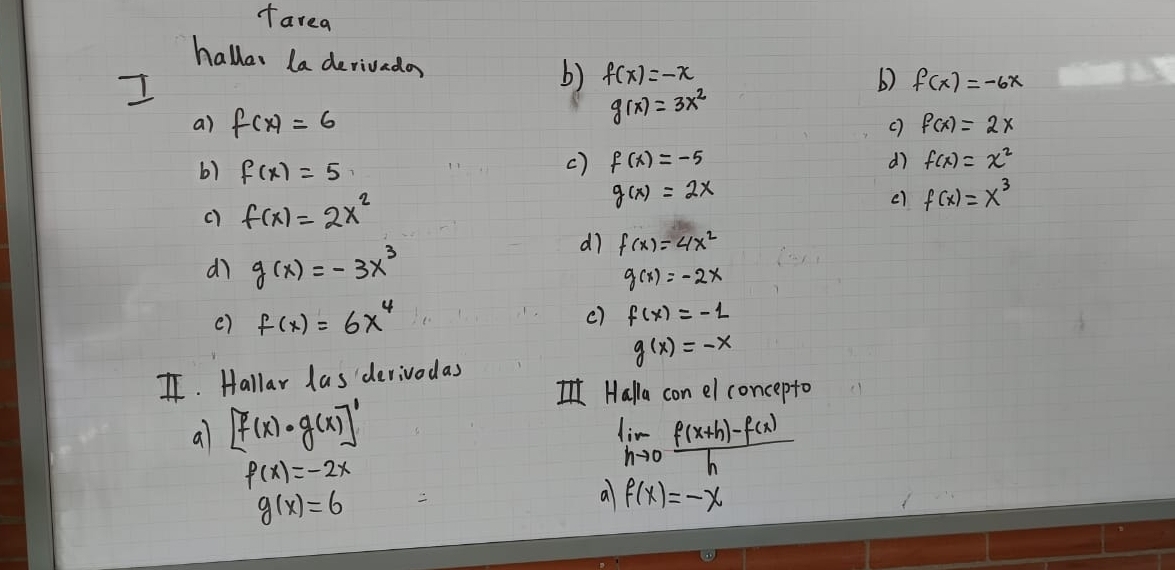 Tarea
hallar la derivadas
I
a) f(x) = 6
b) f(x) = 5
c) f(x) = 2x²
d) g(x) = - 3x³
e) f(x) = 6x⁴
II. Hallar las derivadas
a) [f(x) • g(x)]'
f(x) = -2x
g(x) = 6
b) f(x) = -x
g(x) = 3x²
c) f(x) = -5
g(x) = 2x
d) f(x) = 4x²
g(x) = -2x
e) f(x) = -1
g(x) = -x
III Halla con el concepto
lim h→0 f(x+h)-f(x) / h
a) f(x) = -x
b) f(x) = -6x
c) f(x) = 2x
d) f(x) = x²
e) f(x) = x³